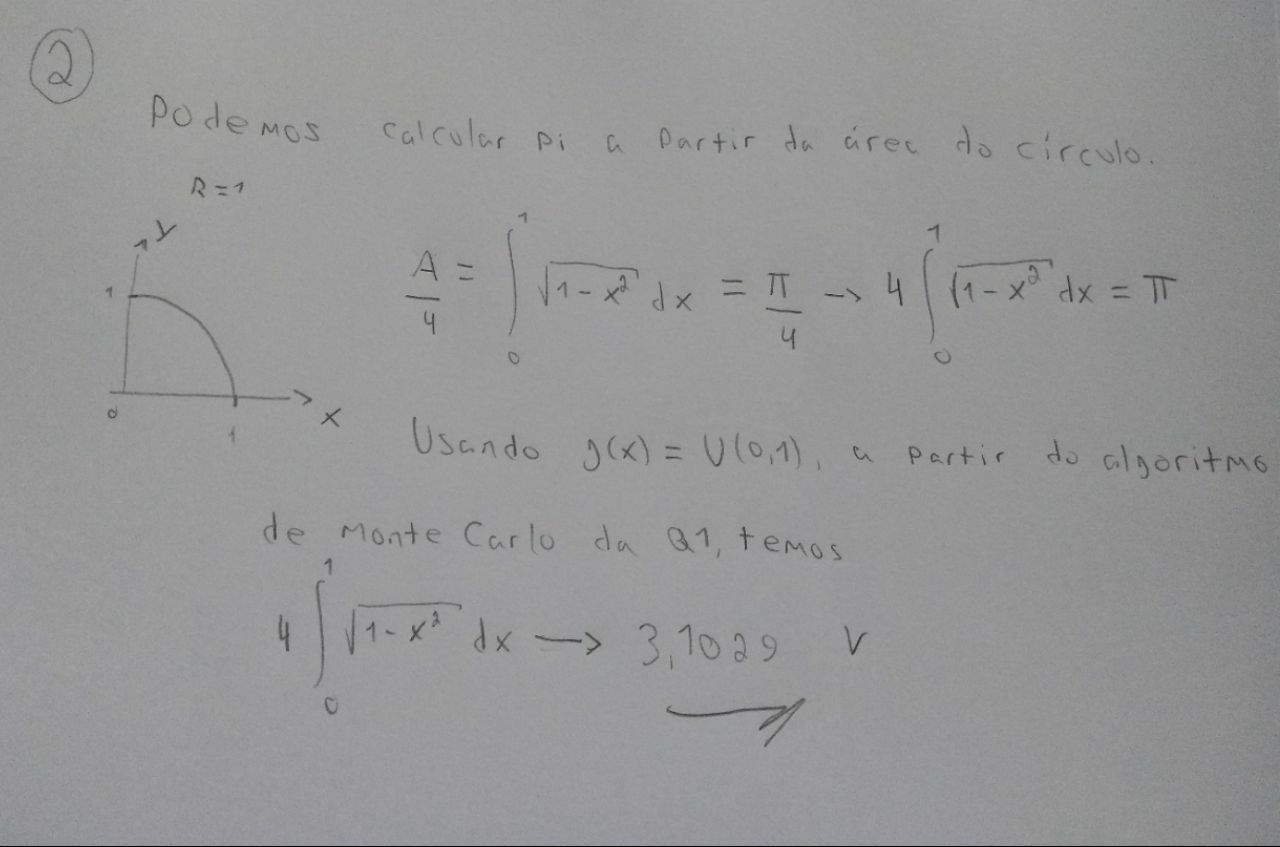 2
Podemos calcular pi a partir da área do círculo.
R=1
y
1
0
1
x
A/4 = ∫₀¹ √(1-x²) dx = π/4 → 4 ∫₀¹ √(1-x²) dx = π
Usando g(x) = U(0,1), a partir do algoritmo
de Monte Carlo da Q1, temos
4 ∫₀¹ √(1-x²) dx → 3,1029 v